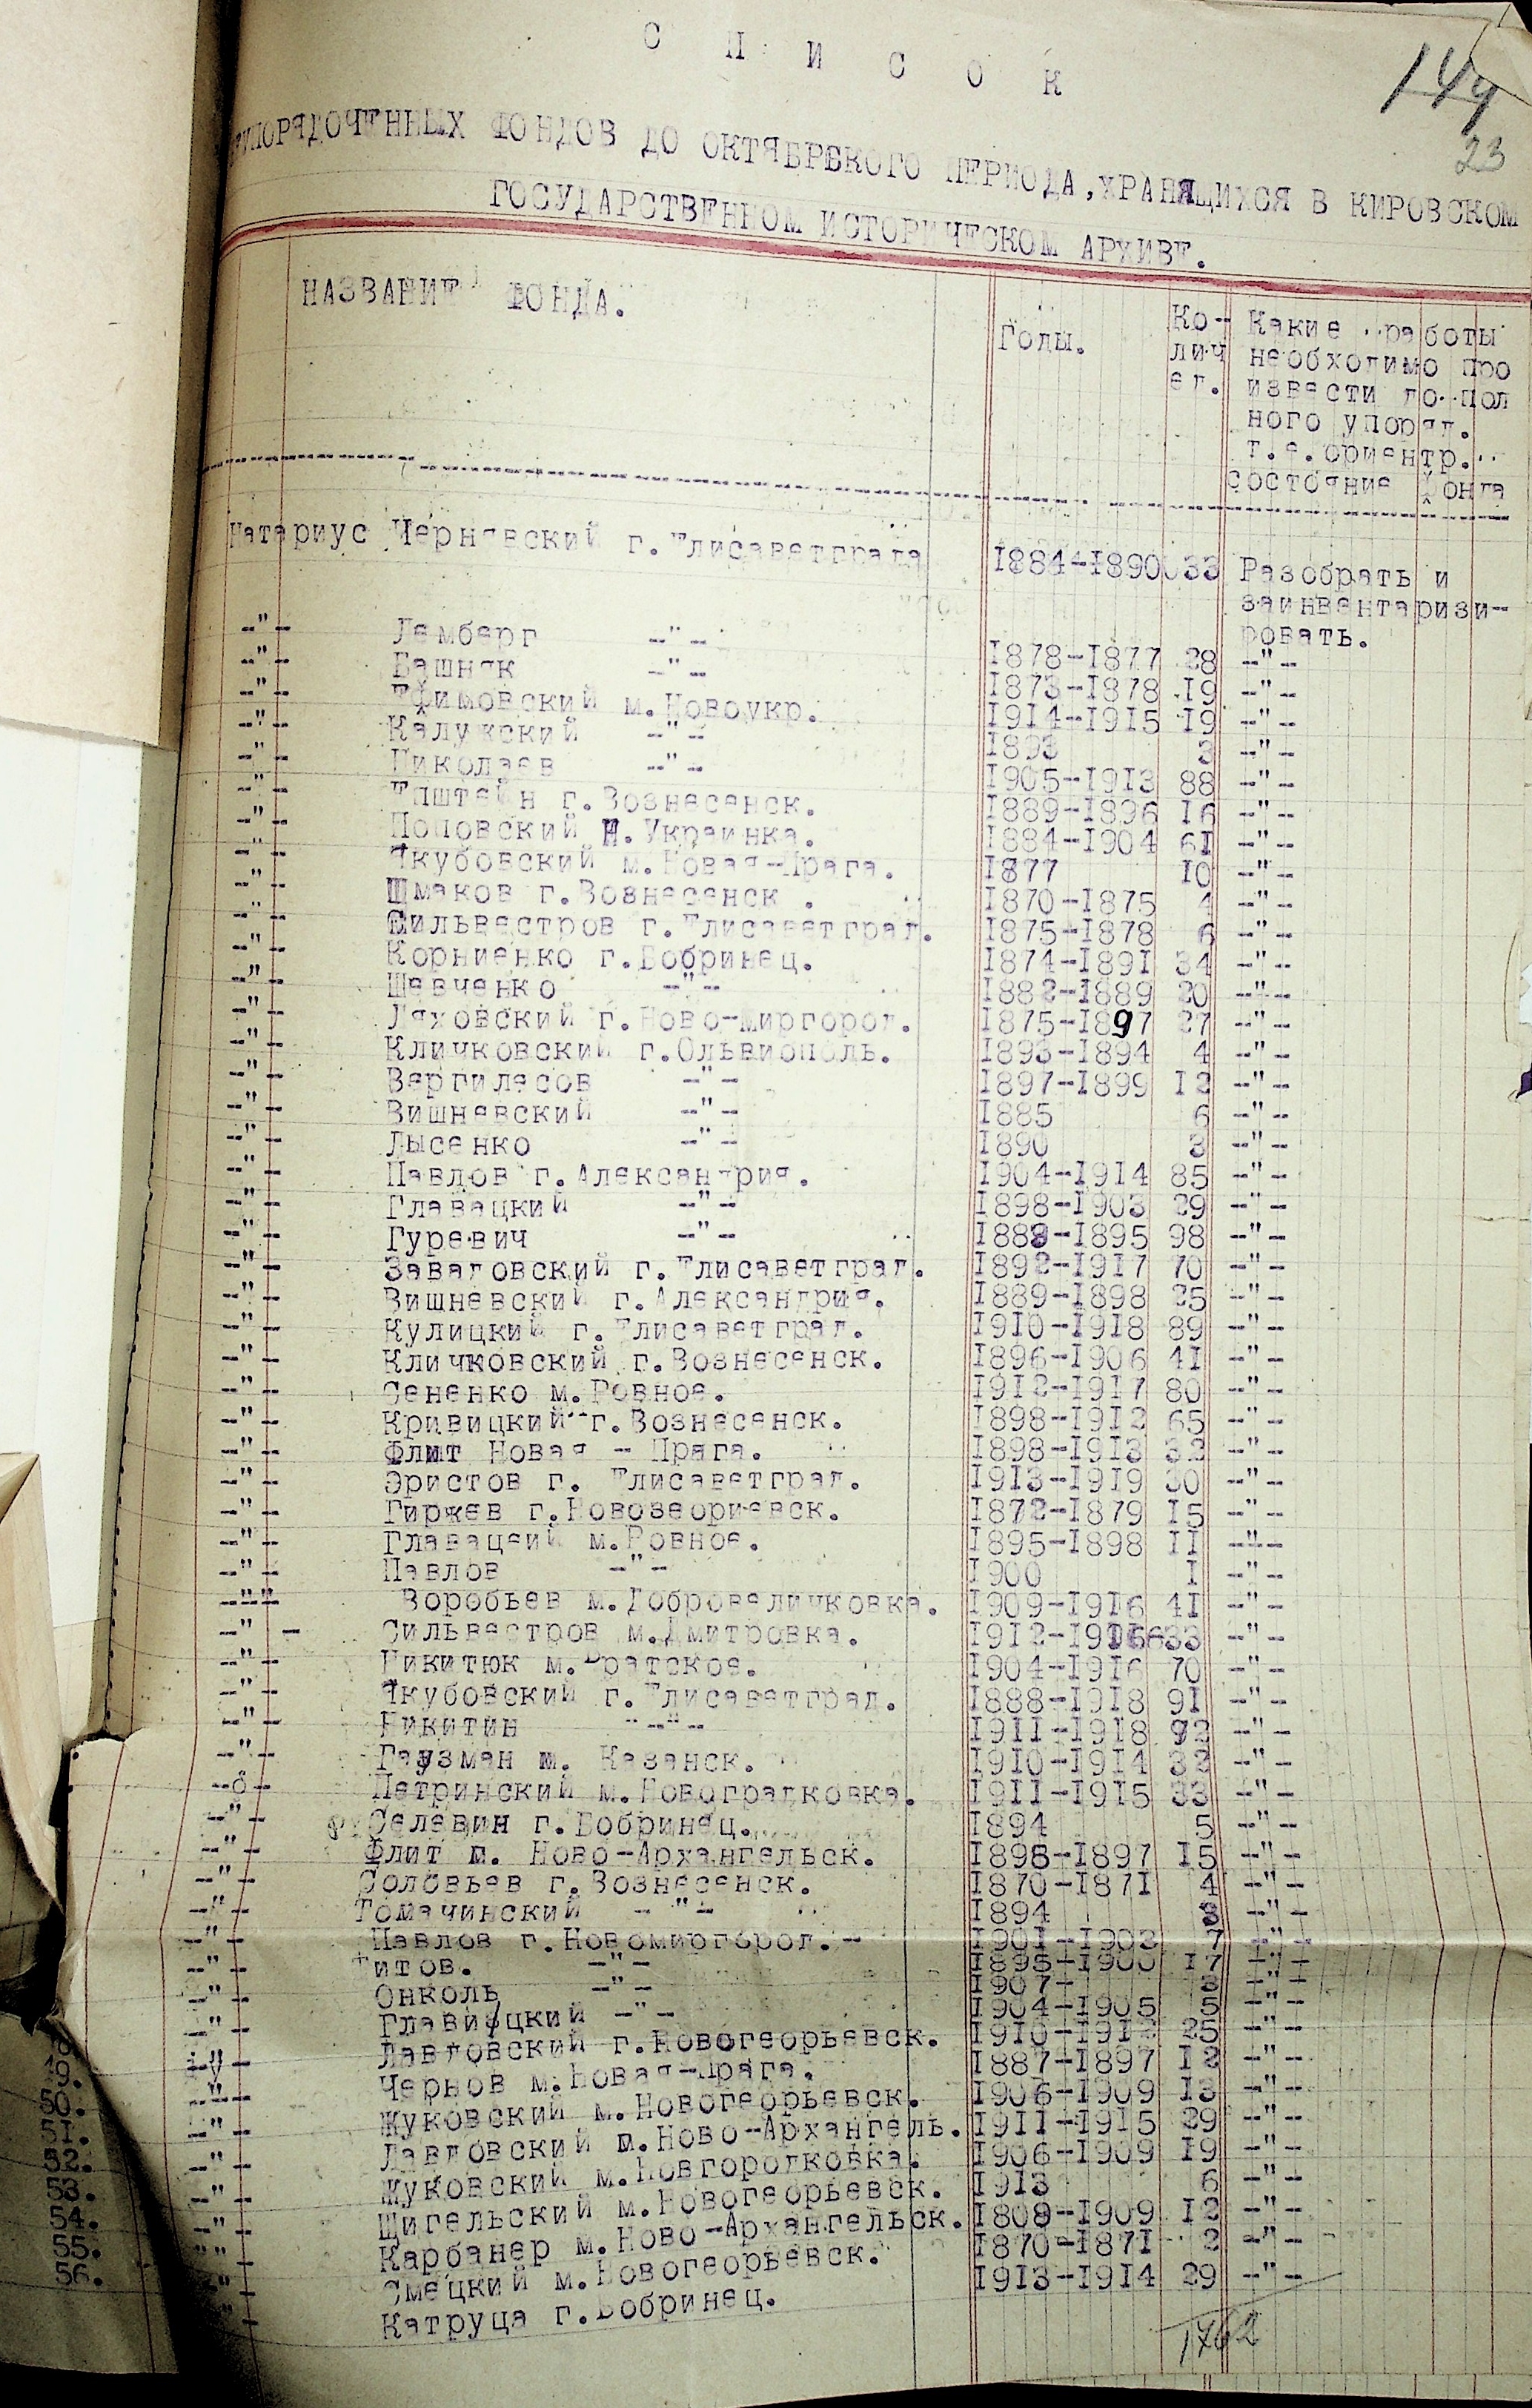 144
23
С П И С О К
УПОРЯДОЧЕННЫХ ФОНДОВ ДО ОКТЯБРСКОГО ПЕРИОДА, ХРАНЯЩИХСЯ В КИРОВСКОМ
ГОСУДАРСТВЕННОМ ИСТОРИЧЕСКОМ АРХИВЕ.
НАЗВАНИЕ ФОНДА. Годы. Ко- Какие работы
лич необходимо про
ед. извести до пол
ного упоряд.
т.е. ориентр.
состояние фонда
Натариус Чернявский г.Елисаветграда 1884-1890 33 Разобрать и
заинвентаризи-
ровать.
-"- Лемберг -"- 1878-1877 28 -"-
-"- Башняк -"- 1873-1878 19 -"-
-"- Ефимовский м.Новоукр. 1914-1915 19 -"-
-"- Калужский -"- 1893 3 -"-
-"- Николаев -"- 1905-1913 88 -"-
-"- Епштейн г.Вознесенск. 1889-1896 16 -"-
-"- Поповский Н.Украинка. 1884-1904 61 -"-
-"- Якубовский м.Новая-Прага. 1877 10 -"-
-"- Шмаков г.Вознесенск . 1870-1875 4 -"-
-"- Сильвестров г.Елисаветград. 1875-1878 6 -"-
-"- Корниенко г.Бобринец. 1874-1891 34 -"-
-"- Шевченко -"- 1882-1889 20 -"-
-"- Ляховский г.Ново-миргород. 1875-1897 27 -"-
-"- Кличковский г.Ольвиополь. 1893-1894 4 -"-
-"- Вергилесов -"- 1897-1899 12 -"-
-"- Вишневский -"- 1885 6 -"-
-"- Лысенко -"- 1890 3 -"-
-"- Павлов г.Александрия. 1904-1914 85 -"-
-"- Главацкий -"- 1898-1903 29 -"-
-"- Гуревич -"- 1889-1895 98 -"-
-"- Завадовский г.Елисаветград. 1892-1917 70 -"-
-"- Вишневский г.Александрия. 1889-1898 25 -"-
-"- Кулицкий г.Елисаветград. 1910-1918 89 -"-
-"- Кличковский г.Вознесенск. 1896-1906 41 -"-
-"- Сененко м.Ровное. 1912-1917 80 -"-
-"- Кривицкий г.Вознесенск. 1898-1912 65 -"-
-"- Флит Новая - Прага. 1898-1913 32 -"-
-"- Эристов г. Елисаветград. 1913-1919 30 -"-
-"- Гиржев г.Новозеориевск. 1872-1879 15 -"-
-"- Главацеий м.Ровное. 1895-1898 11 -"-
-"- Павлов -"- 1900 1 -"-
-"- Воробьев м.Добровеличковка. 1909-1916 41 -"-
-" - Сильвестров м.Дмитровка. 1912-1916 33 -"-
-"- Никитюк м.Братское. 1904-1916 70 -"-
-"- Якубовский г.Елисаветград. 1888-1918 91 -"-
-"- Никитин -"- 1911-1918 92 -"-
-"- Гаузман м. Казанск. 1910-1914 32 -"-
-"- Петринский м.Новоградковка. 1911-1915 33 -"-
-"- Селевин г.Бобринец. 1894 5 -"-
-"- Флит м. Ново-Архангельск. 1896-1897 15 -"-
-"- Соловьев г.Вознесенск. 1870-1871 4 -"-
-"- Томачинский -"- 1894 3 -"-
-"- Павлов г.Новомиргород.- 1901-1903 7 -"-
-"- Титов. -"- 1895-1900 17 -"-
-"- Онколь -"- 1907- 3 -"-
-"- Главицкий -"- 1904-1905 5 -"-
-"- Лавдовский г.Новогеорьевск. 1910-1912 25 -"-
49. -"- Чернов м.Новая-Прага. 1887-1897 12 -"-
50. -"- Жуковский м.Новогеорьевск. 1906-1909 13 -"-
51. -"- Лавдовский м.Ново-Архангель. 1911-1915 29 -"-
52. -"- Жуковский м.Новгородковка. 1906-1909 19 -"-
53. -"- Шигельский м.Новогеорьевск. 1913 6 -"-
54. -"- Карбанер м.Ново-Архангельск. 1809-1909 12 -"-
55. -"- Смецкий м.Новогеорьевск. 1870-1871 2 -"-
56. -"- Катруца г.Бобринец. 1913-1914 29 -"-
1762